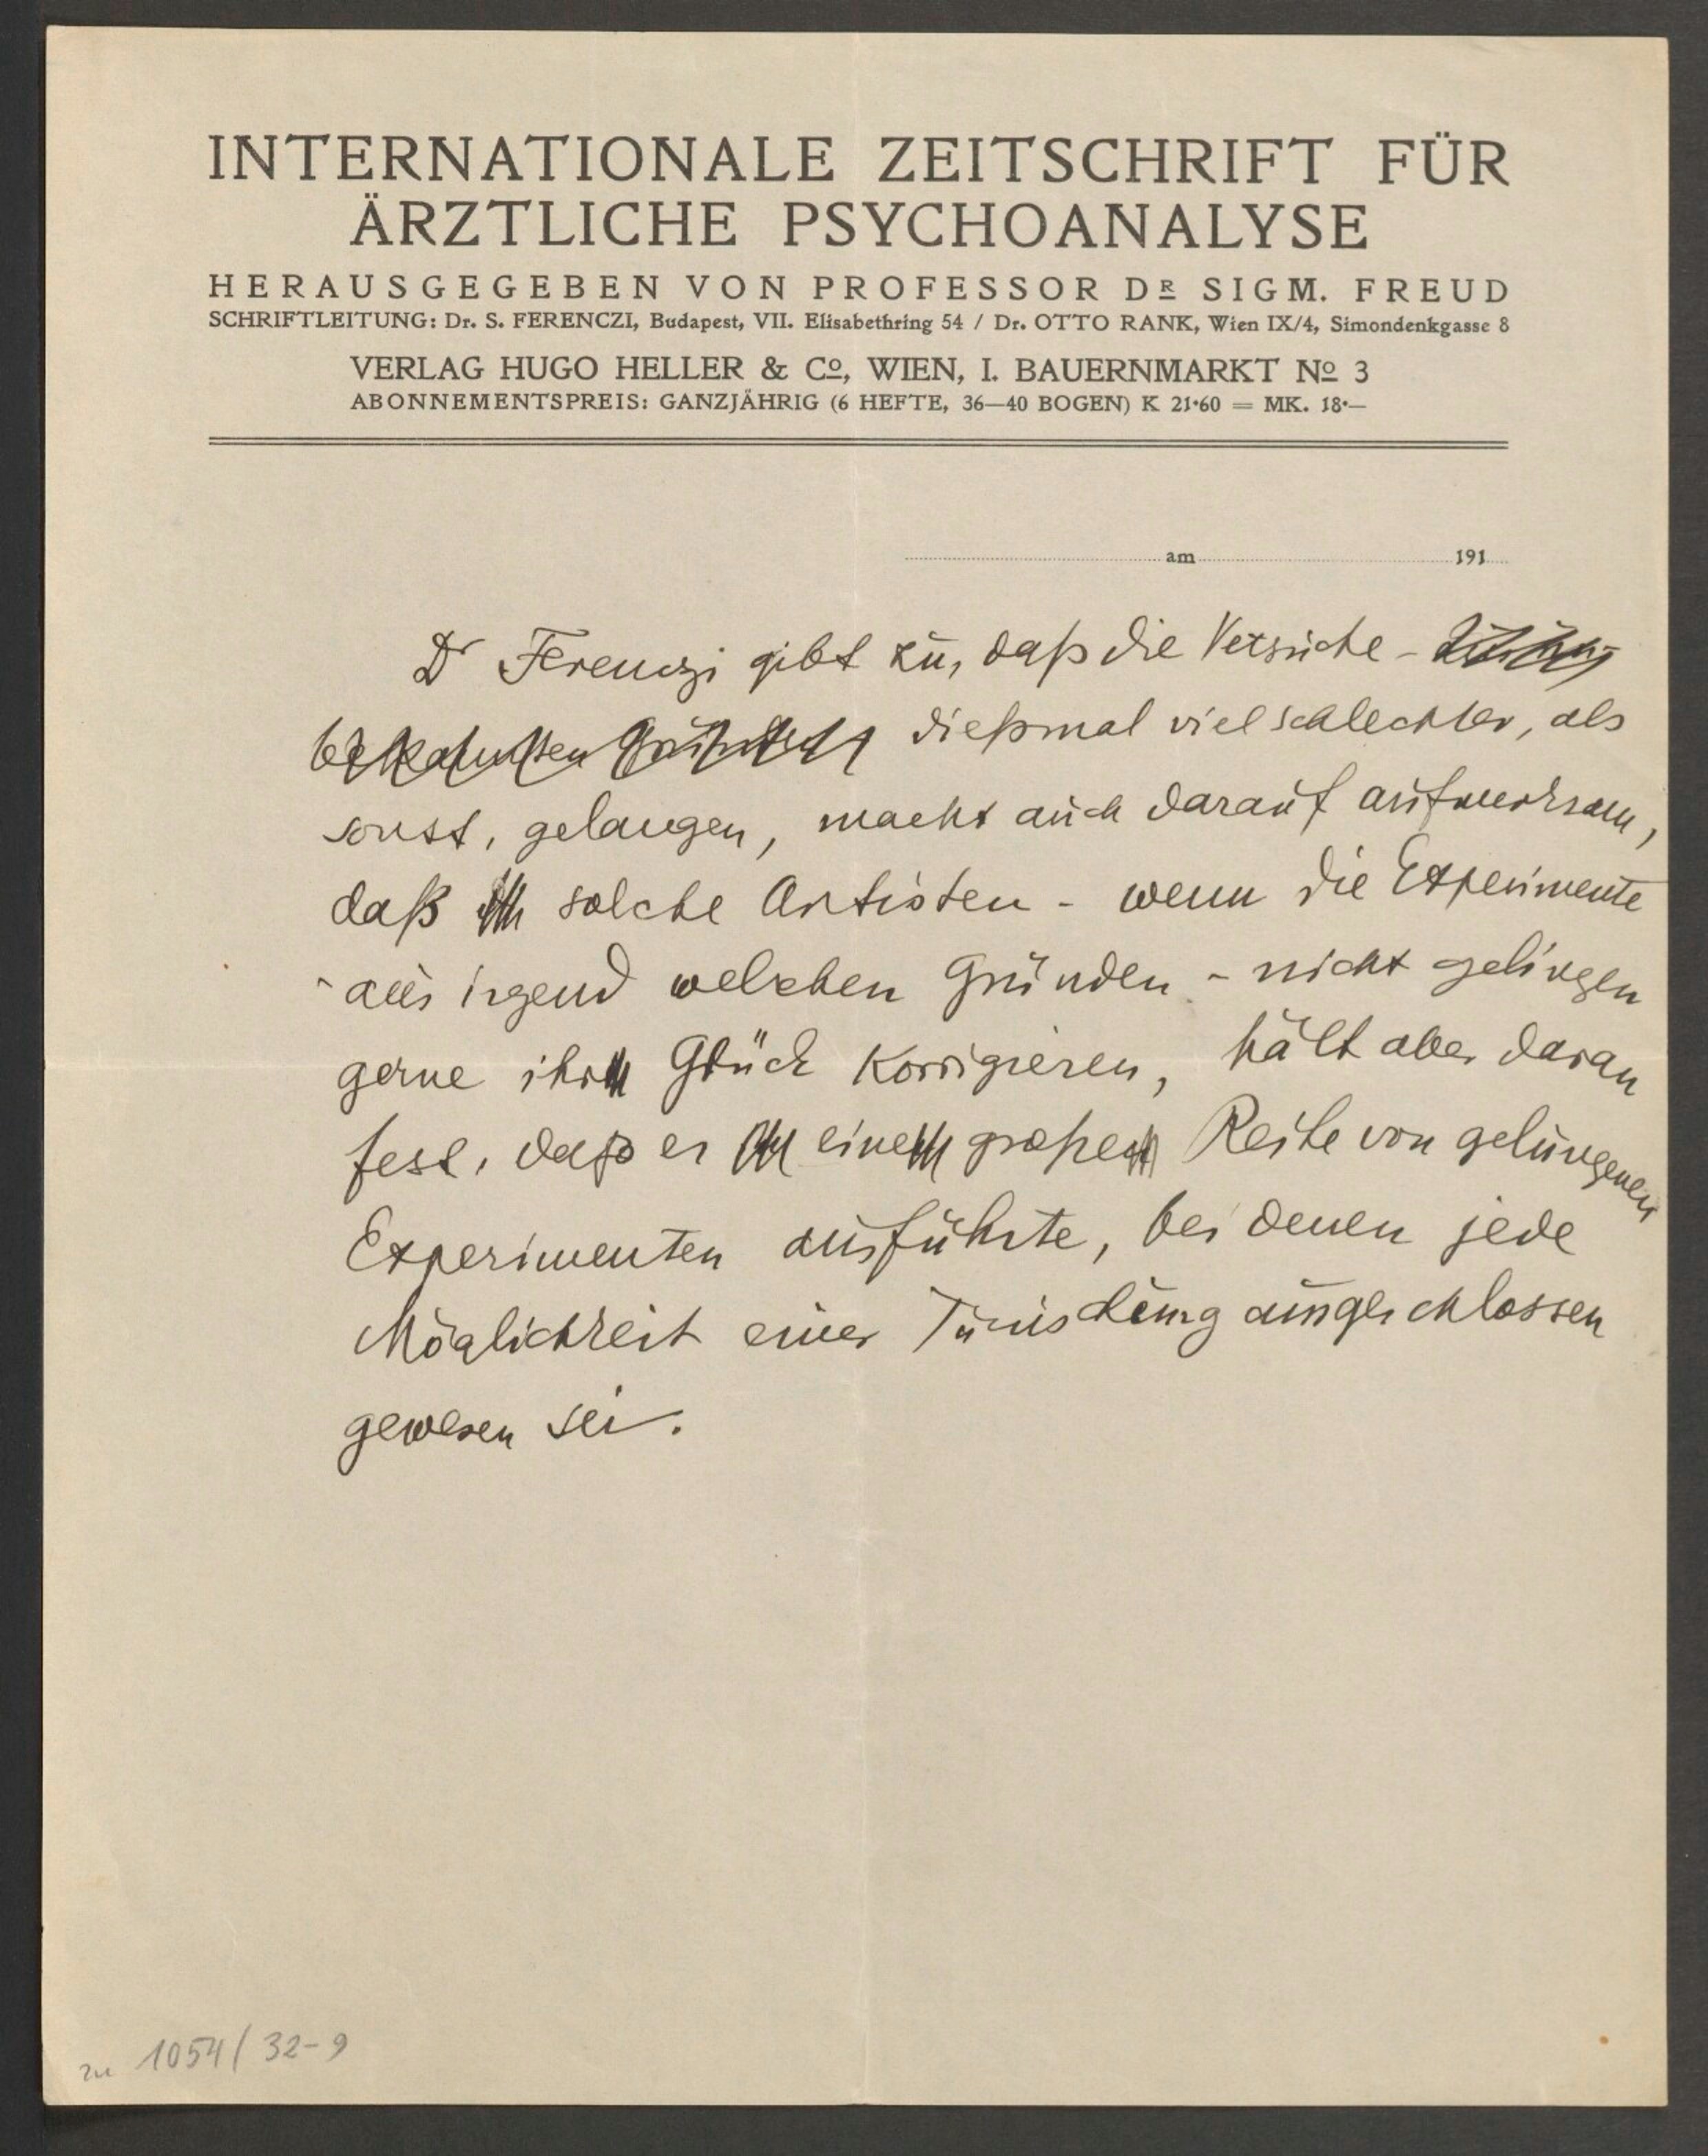 INTERNATIONALE ZEITSCHRIFT FÜR
ÄRZTLICHE PSYCHOANALYSE
HERAUSGEGEBEN VON PROFESSOR DR SIGM. FREUD
SCHRIFTLEITUNG: Dr. S. FERENCZI, Budapest, VII. Elisabethring 54 / Dr. OTTO RANK, Wien IX/4, Simondenkgasse 8
VERLAG HUGO HELLER & Co, WIEN, I. BAUERNMARKT No 3
ABONNEMENTSPREIS: GANZJÄHRIG (6 HEFTE, 36—40 BOGEN) K 21·60 = MK. 18·—
am 191
Dr Ferenczi gibt zu, daß die Versuche -
bekannten Gründen dießmal viel schlechter, als
sonst, gelangen, macht auch darauf aufmerksam,
daß solche Artisten - wenn die Experimente
- aus irgend welchen Gründen - nicht gelingen
gerne ihr Glück korrigieren, hält aber daran
fest, daß er eine große Reihe von gelungenen
Experimenten ausführte, bei denen jede
Möglichkeit einer Täuschung ausgeschlossen
gewesen sei.
zu 1054/32-9